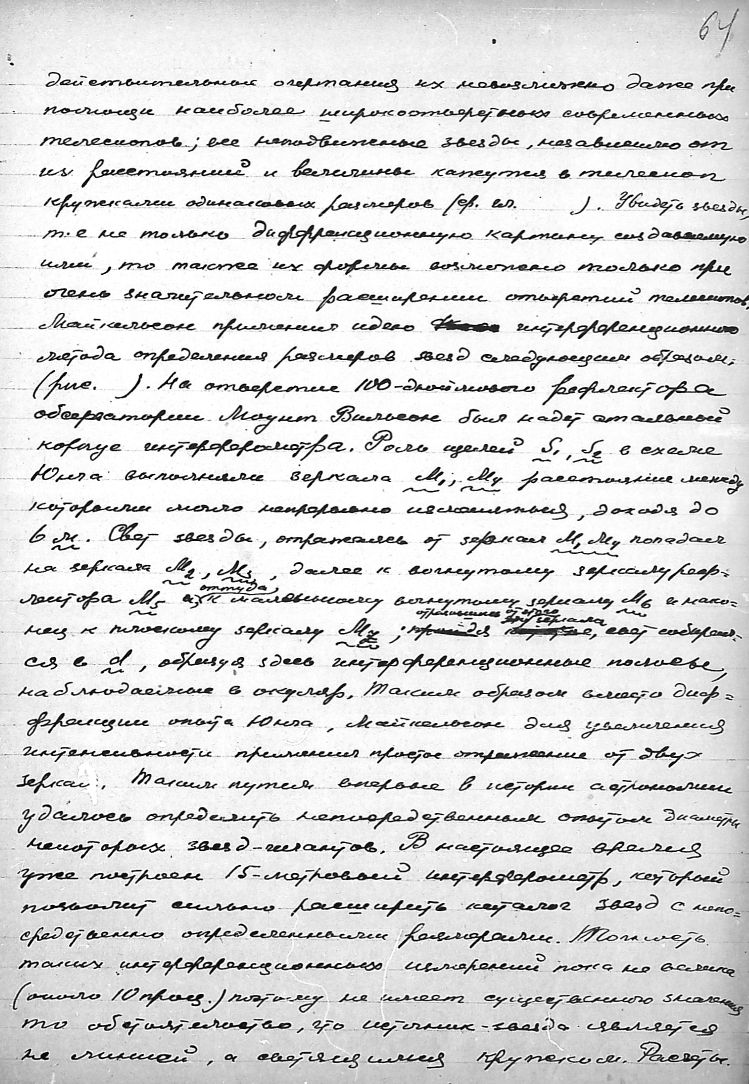 64
действительное очертания их невозможно даже при
помощи наиболее широкоотверстных современных
телескопов; все неподвижные звезды, независимо от
их расстояний и величины кажутся в телескоп
кружками одинаковых размеров (ср. гл. ). Увидеть звезды,
т.е не только диффракционную картину создаваемую
ими, но также их формы возможно только при
очень значительном расширении отверстий телескопов.
Майкельсон применил идею интерференционного
метода определения размеров звезд следующим образом.
(рис. ). На отверстие 100-дюймового рефлектора
обсерватории Моунт Вильсон был надет стальной
корпус интерферометра. Роль щелей S₁, S₂ в схеме
Юнга выполняли зеркала M₁, M₄ расстояние между
которыми могло непрерывно изменяться, доходя до
6 м. Свет звезды, отражаясь от зеркал M₁ M₄ попадал
на зеркала M₂, M₃, далее к вогнутому зеркалу реф-
лектора M₅ оттуда, к маленькому вогнутому зеркалу M₆ и нако-
нец к плоскому зеркалу M₇; отразившись от этого зеркала, свет собирал-
ся в d, образуя здесь интерференционные полосы,
наблюдаемые в окуляр. Таким образом вместо диф-
фракции опыта Юнга, Майкельсон для увеличения
интенсивности применил простое отражение от двух
зеркал. Таким путем впервые в истории астрономии
удалось определить непосредственным опытом диаметры
некоторых звезд-гигантов. В настоящее время
уже построен 15-метровый интерферометр, который
позволит сильно расширить каталог звезд с непо-
средственно определенными размерами. Точность
таких интерференционных измерений пока не велика
(около 10 проц.) поэтому не имеет существенного значения
то обстоятельство, что источник-звезда является
не линией, а светящимся кружком. Расчеты